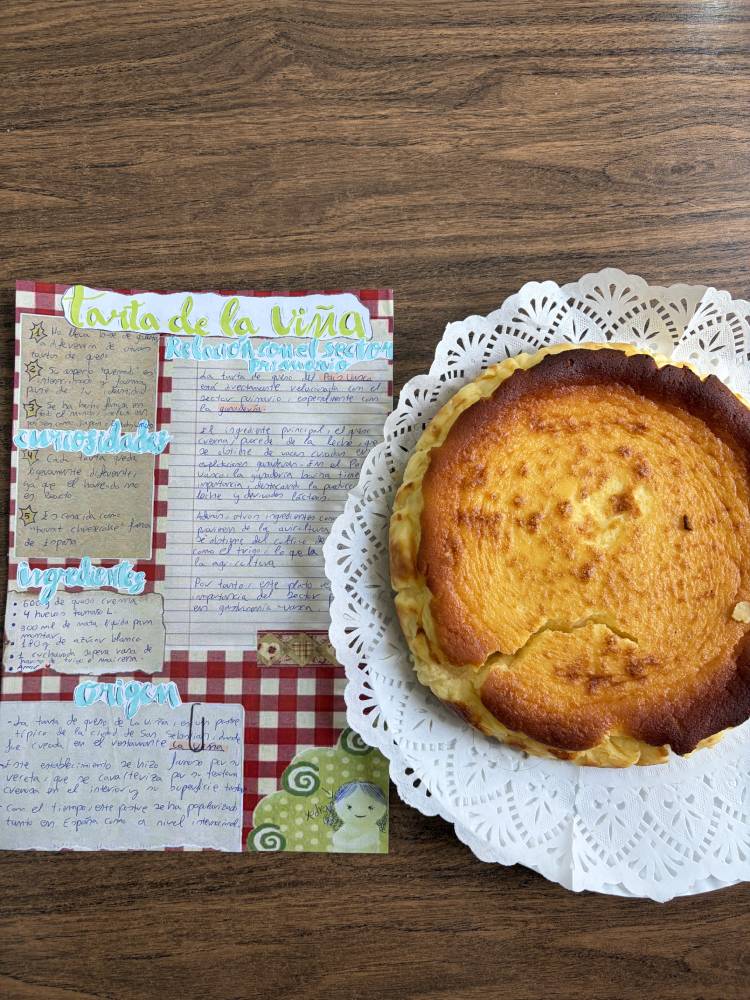 tarta de la viña
1 No lleva base de galleta
a diferencia de otras
tartas de queso
2 Su aspecto "quemado" es
intencionado y forma
parte de su identidad
3 Se ha hecho famosa en
todo el mundo
curiosidades
4 Cada tarta queda
ligeramente diferente,
ya que el horneado no
es exacto
5 Es conocida como
"burnt cheesecake" fuera
de España
ingredientes
600g de queso crema
4 huevos tamaño L
300 ml de nata líquida para
montar
170g de azúcar blanco
1 cucharada sopera rasa de
harina de trigo o maicena
origen
- La tarta de queso de La Viña, es un postre
típico de la ciudad de San Sebastian, donde
fue creada en el restaurante La Viña
- Este establecimiento se hizo famoso por su
receta, que se caracteriza por su textura
cremosa en el interior y su superficie tostada
- Con el tiempo, este postre se ha popularizado
tanto en España como a nivel internacional
Relación con el sector
primario
La tarta de queso del País Vasco
está directamente relacionada con el
sector primario, especialmente con
la ganadería.
El ingrediente principal, el queso
crema, procede de la leche, que
se obtiene de vacas criadas en
explotaciones ganaderas. En el País
Vasco, la ganadería bovina tiene
importancia, destacando la
leche y derivados lácteos.
Además, otros ingredientes como
provienen de la avicultura
se obtiene del cultivo de
como el trigo, lo que la
la agricultura
Por tanto, este plato
importancia del sector
en gastronomía vasca